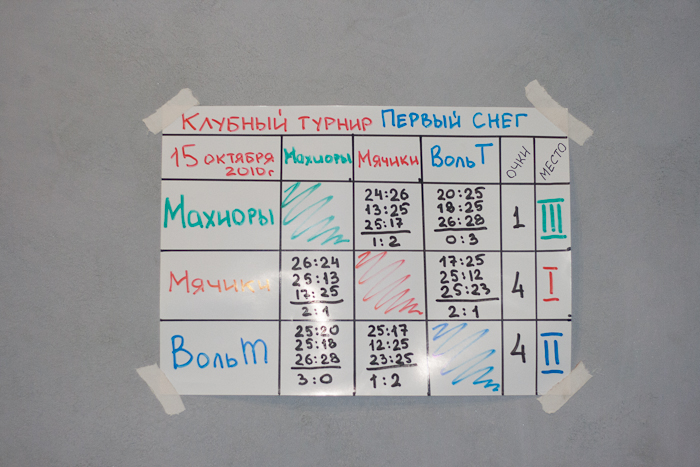 Клубный турнир Первый снег
15 октября 2010г. Махиоры Мячики ВольТ очки место
Махиоры 24:26 20:25 1 III
13:25 18:25
25:17 26:28
1:2 0:3
Мячики 26:24 17:25 4 I
25:13 25:12
17:25 25:23
2:1 2:1
ВольТ 25:20 25:17 4 II
25:18 12:25
26:28 23:25
3:0 1:2